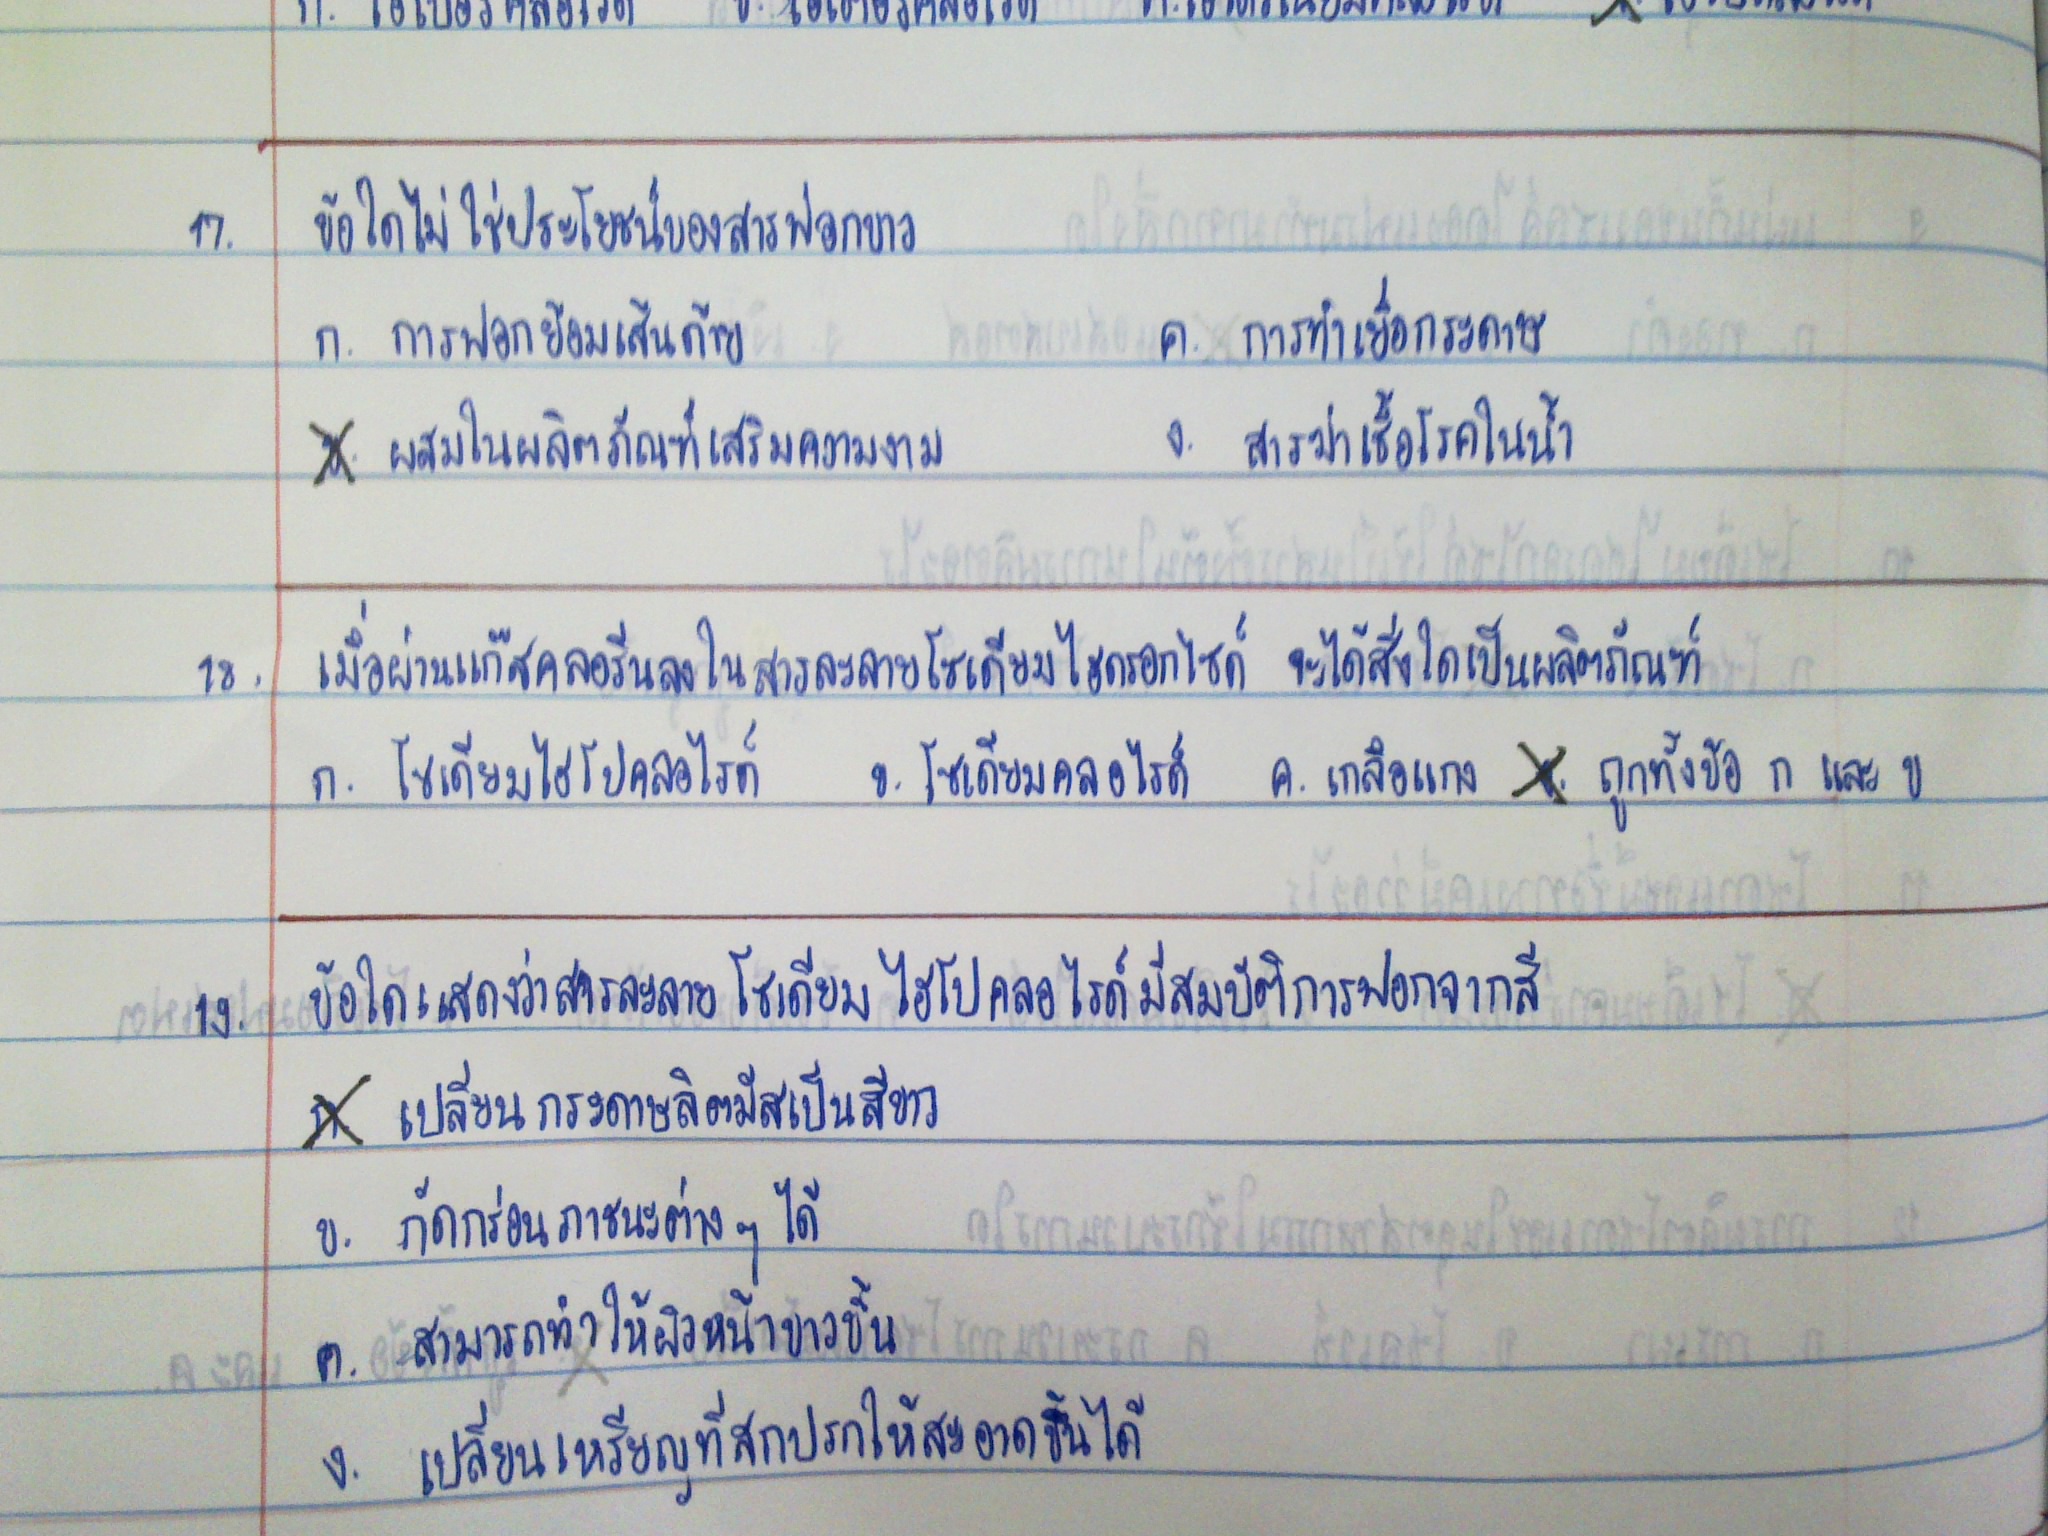 17. ข้อใดไม่ใช่ประโยชน์ของสารฟอกขาว
ก. การฟอกย้อมเส้นด้าย ค. การทำเยื่อกระดาษ
ข. ผสมในผลิตภัณฑ์เสริมความงาม ง. สารฆ่าเชื้อโรคในน้ำ
18. เมื่อผ่านแก๊สคลอรีนลงในสารละลายโซเดียมไฮดรอกไซด์ จะได้สิ่งใดเป็นผลิตภัณฑ์
ก. โซเดียมไฮโปคลอไรด์ ข. โซเดียมคลอไรด์ ค. เกลือแกง ง. ถูกทั้งข้อ ก และ ข
19. ข้อใดแสดงว่าสารละลายโซเดียมไฮโปคลอไรด์มีสมบัติการฟอกจากสี
ก. เปลี่ยนกระดาษลิตมัสเป็นสีขาว
ข. กัดกร่อนภาชนะต่างๆ ได้
ค. สามารถทำให้ผิวหน้าขาวขึ้น
ง. เปลี่ยนเหรียญที่สกปรกให้สะอาดขึ้นได้